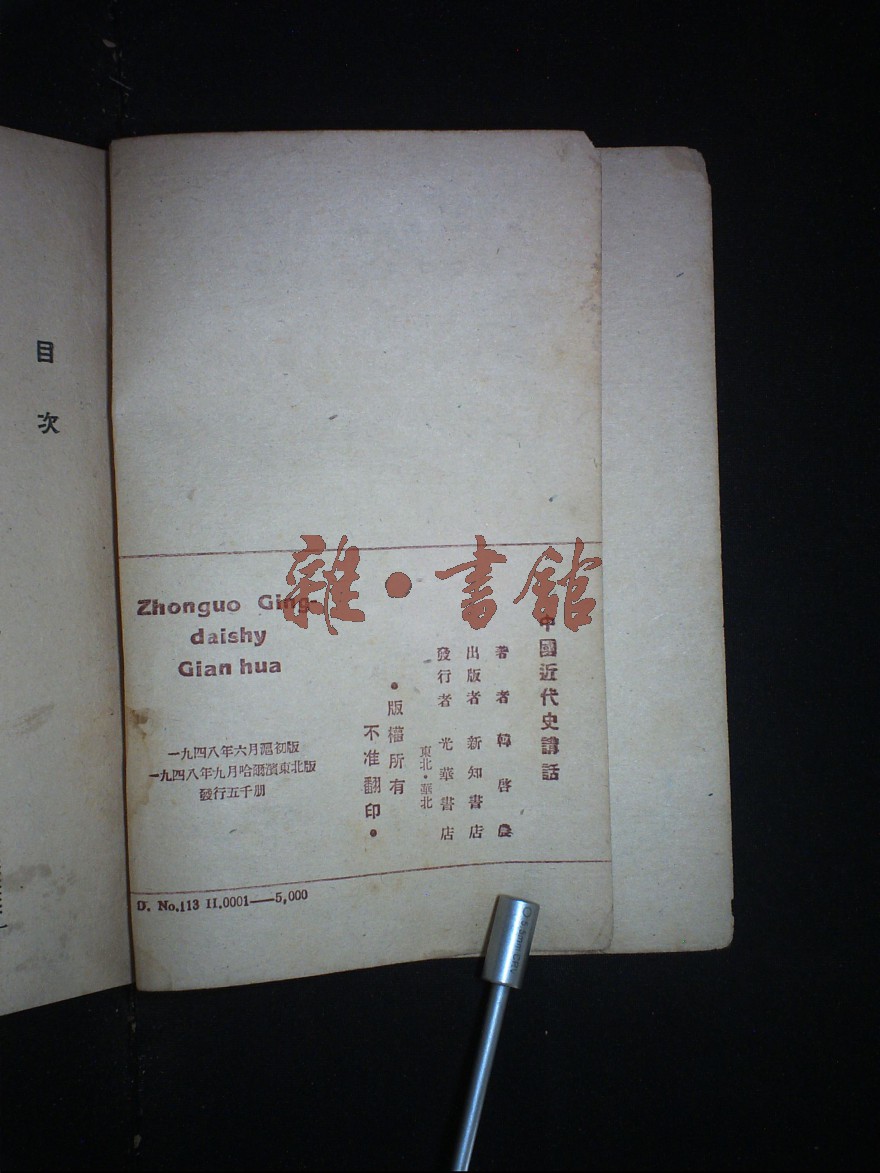 目次
雜·書館
中國近代史講話
著者 韓啓農
出版者 新知書店
發行者 光華書店
東北·華北
·版權所有
不准翻印·
Zhonguo Ging-
daishy
Gian hua
一九四八年六月滬初版
一九四八年九月哈爾濱東北版
發行五千册
D. No.113 H.0001——5,000